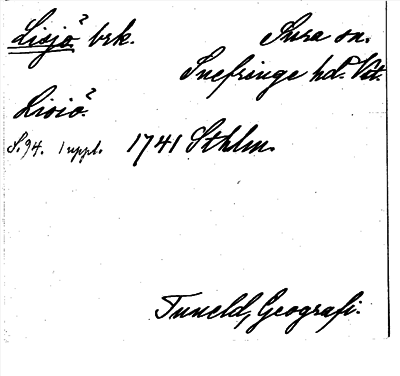 Lisjö? brk. Sura sn.
Snefringe hd. Vstm.
Lisiö?
S. 94. 1 uppl. 1741 Sthlm.
Tuneld, Geografi.